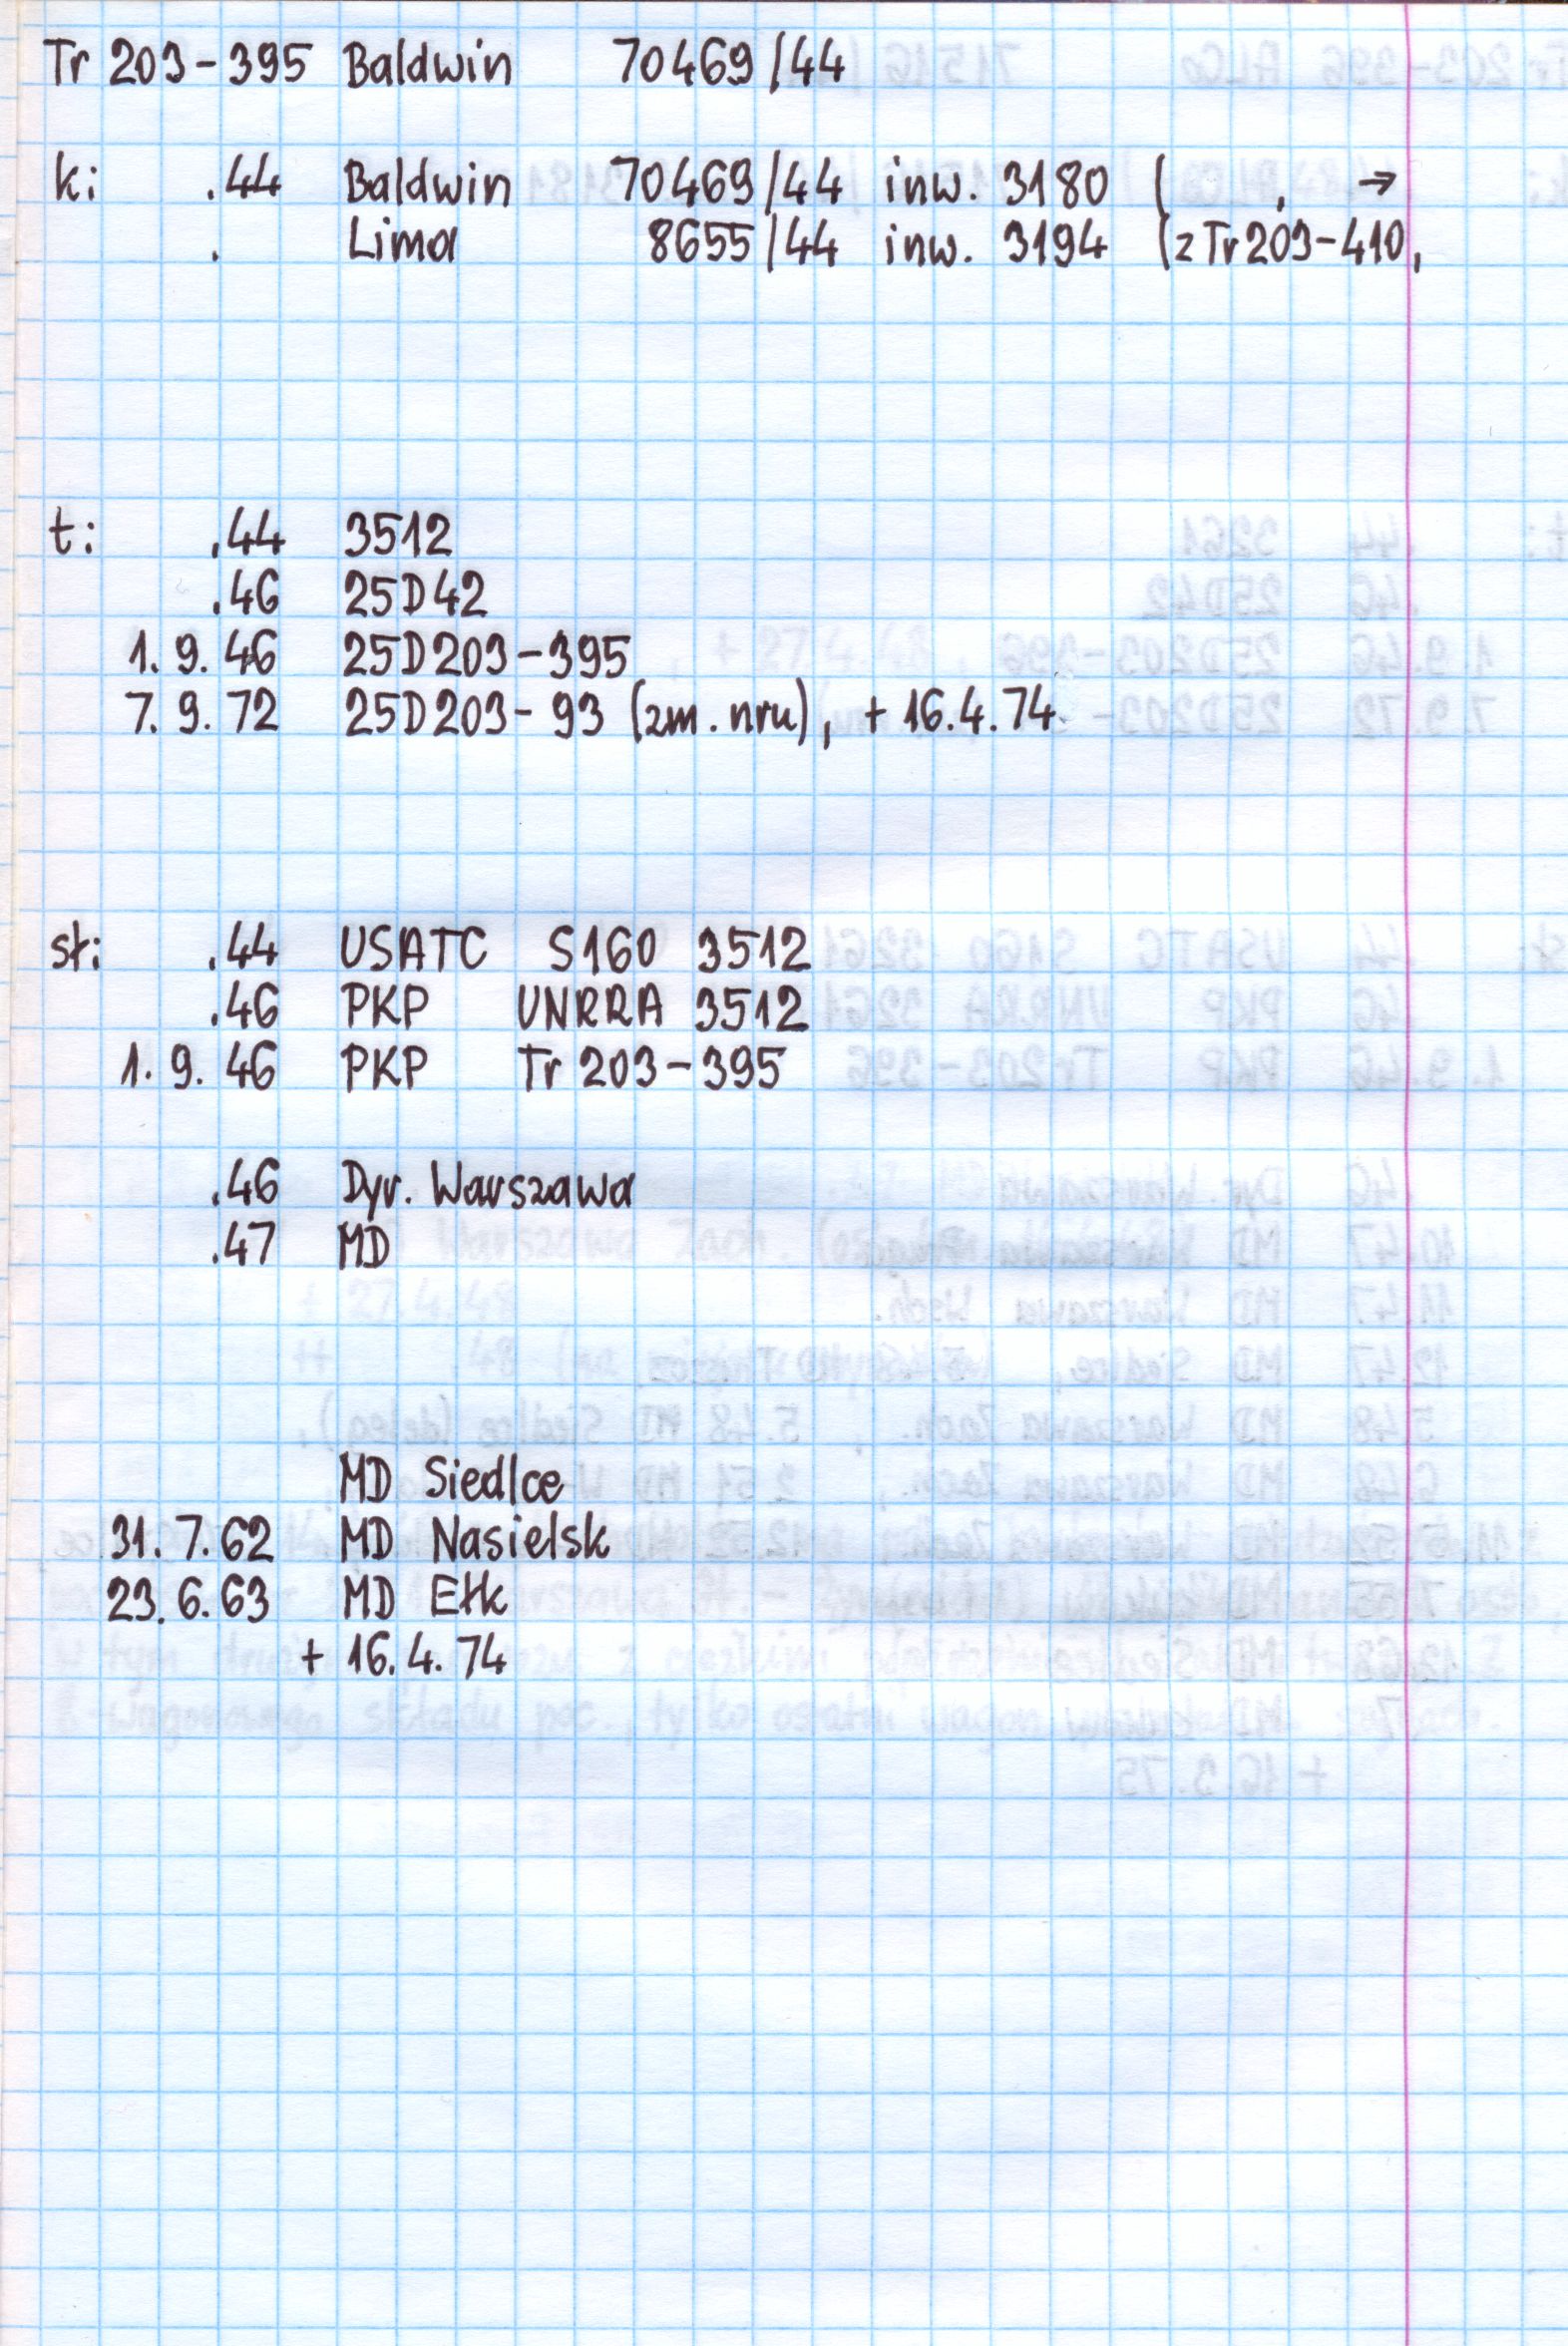 Tr 203-395 Baldwin 70469/44
k: .44 Baldwin 70469/44 inw. 3180 ( , →
. Lima 8655/44 inw. 3194 (z Tr 203-410,
t: .44 3512
.46 25D42
1. 9. 46 25D203-395
7. 9. 72 25D203- 93 (zm. nru), + 16.4.74
sł: .44 USATC S160 3512
.46 PKP UNRRA 3512
1. 9. 46 PKP Tr 203-395
.46 Dyr. Warszawa
.47 MD
MD Siedlce
31. 7. 62 MD Nasielsk
23. 6. 63 MD Ełk
+ 16. 4. 74